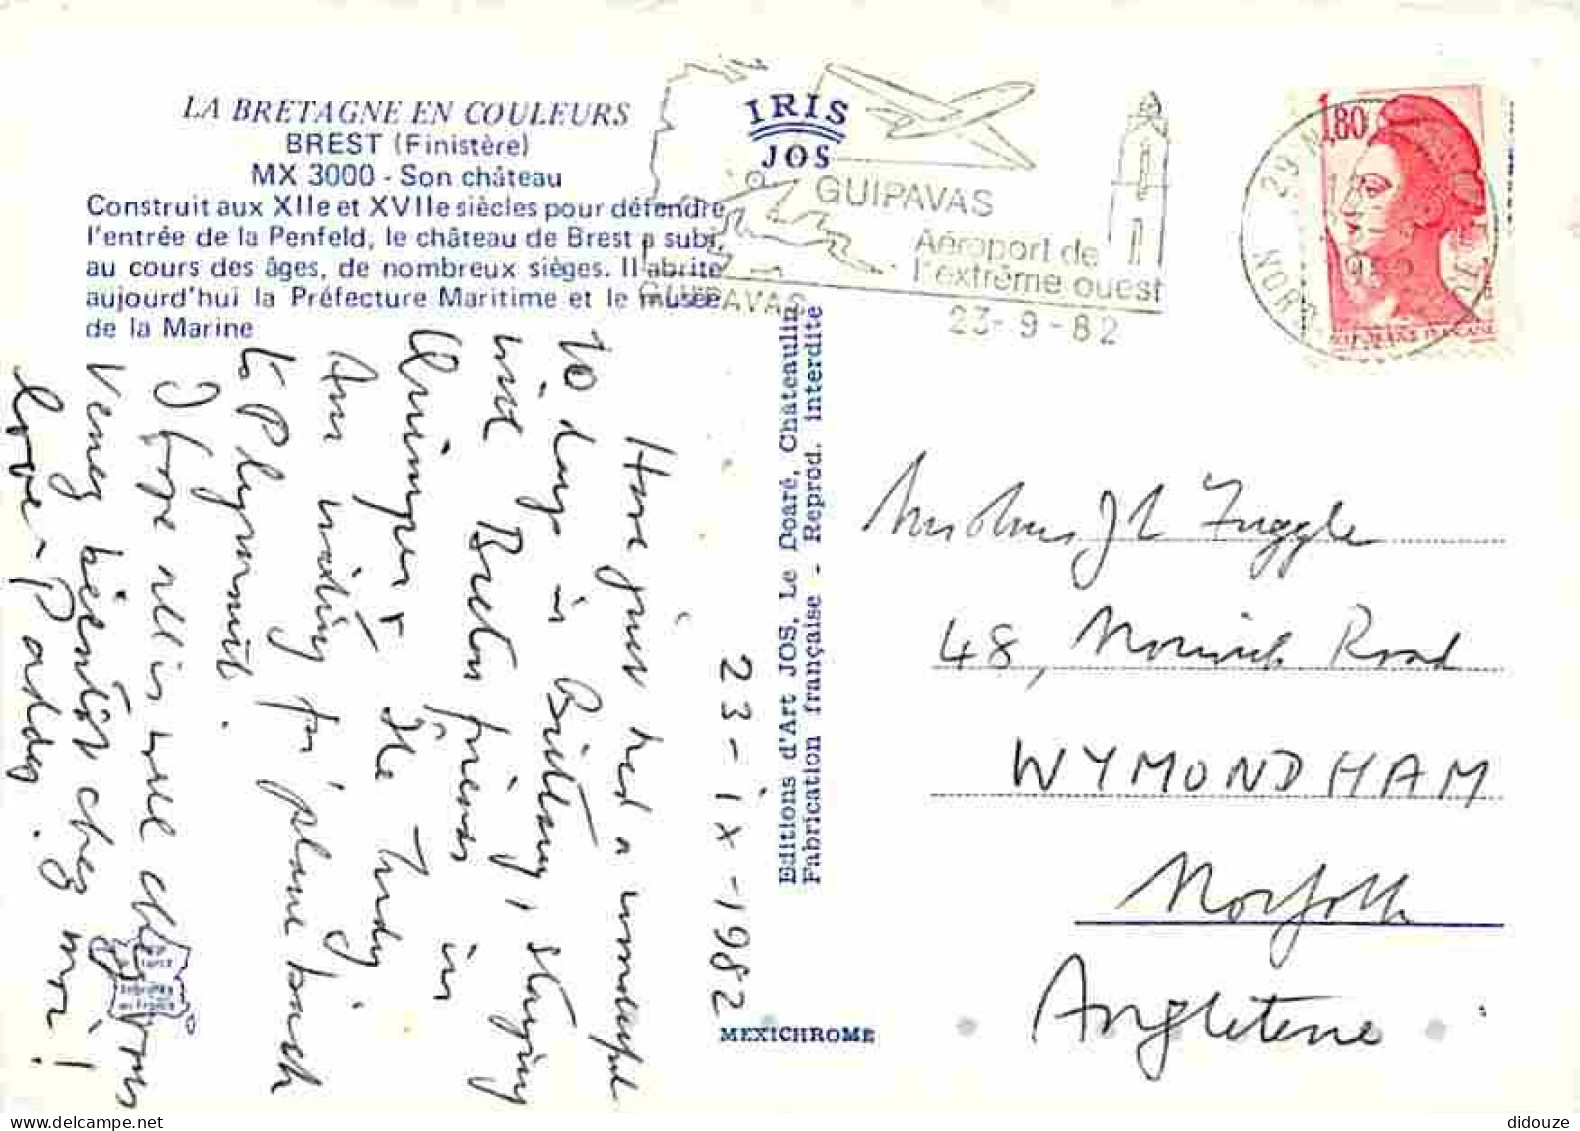 LA BRETAGNE EN COULEURS
BREST (Finistère)
MX 3000 - Son château
Construit aux XIIe et XVIIe siècles pour défendre
l'entrée de la Penfeld, le château de Brest a subi,
au cours des âges, de nombreux sièges. Il abrite
aujourd'hui la Préfecture Maritime et le musée
de la Marine
IRIS
JOS
GUIPAVAS
Aéroport de
l'extrême ouest
GUIPAVAS
23-9-82
1,80
29 N
23-ix-1982
Have just had a wonderful
10 days in Brittany, staying
with Breton friends in
Quimper &
Am waiting for 'plane back
to Plymouth.
I hope all is well chez vous
Venez bientôt chez moi!
Love - Paddy.
Editions d'Art JOS, Le Doaré, Chateaulin
Fabrication française - Reprod. interdite
MEXICHROME
48, Norwich Road
WYMONDHAM
Norfolk
Angleterre
didouze